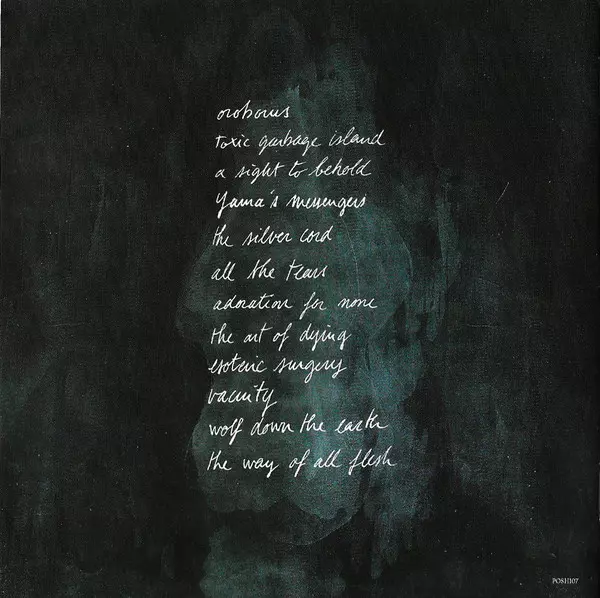 oroborus
toxic garbage island
a sight to behold
Yama's messengers
the silver cord
all the tears
adoration for none
the art of dying
esoteric surgery
vacuity
wolf down the earth
the way of all flesh
POSH107